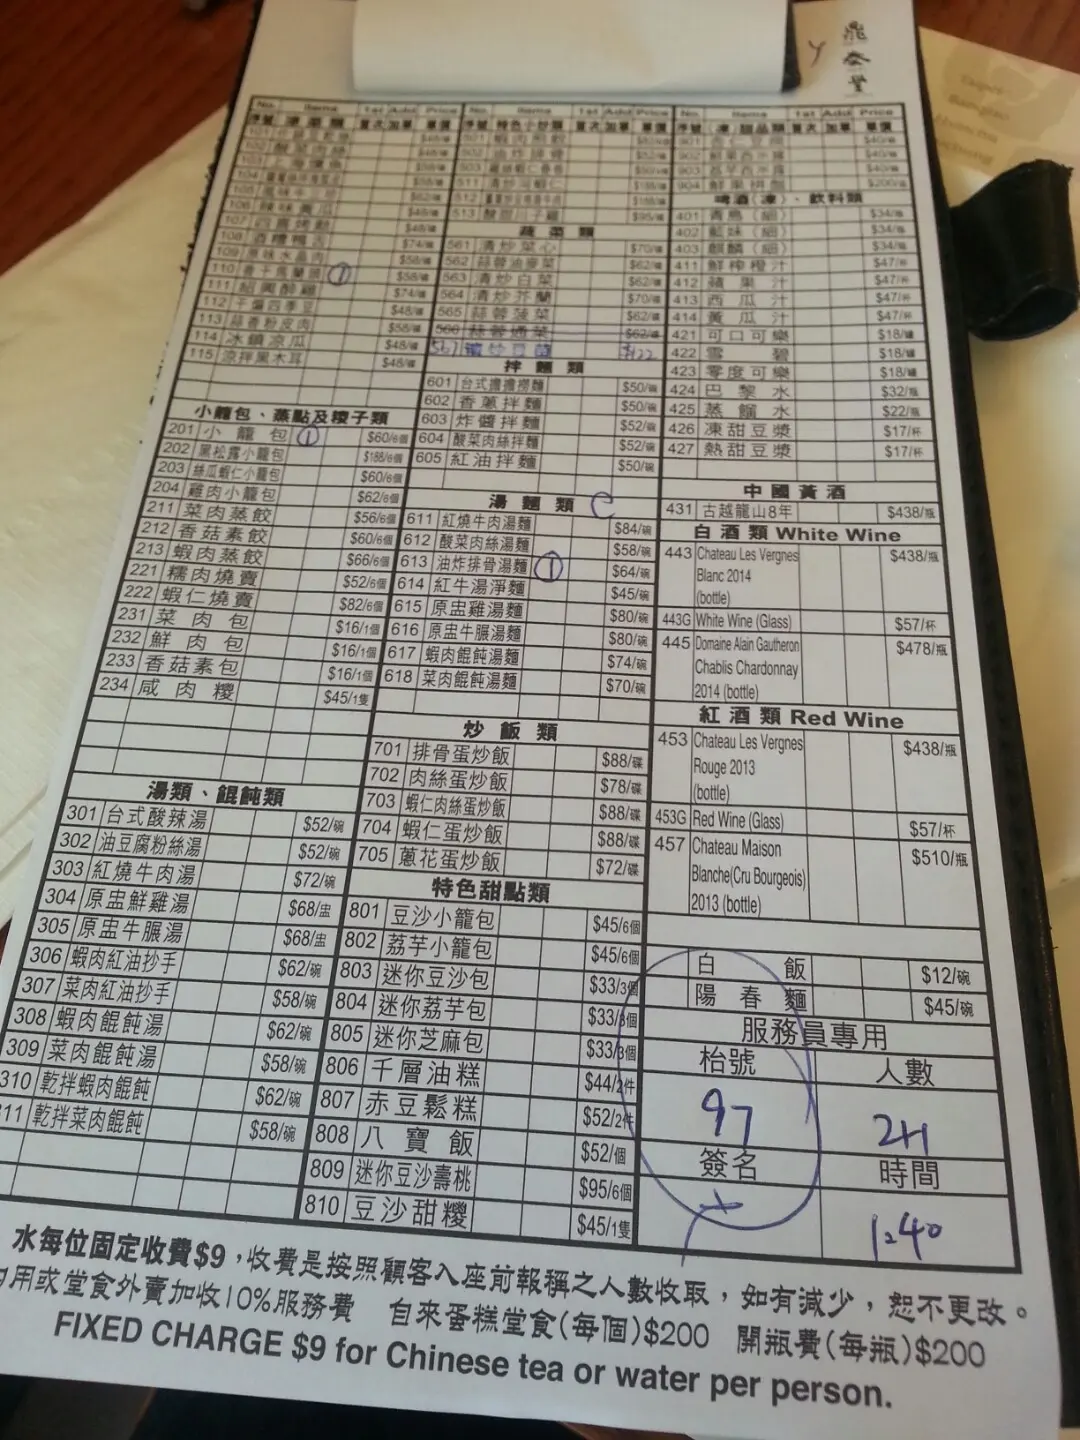 鼎泰豐
No. Items 1st Add Price
序號 首次 加單 單價
106 辣味黃瓜
107 四喜烤麩
108 酒糟鴨舌 $74/碟
109 原味水晶肉 $58/碟
110 香干馬蘭頭 ① $58/碟
111 紹興醉雞 $74/碟
112 干煸四季豆 $48/碟
113 蒜香粉皮肉 $58/碟
114 冰鎮涼瓜 $48/碟
115 涼拌黑木耳 $48/碟
小籠包、蒸點及糭子類
201 小籠包 ① $60/6個
202 黑松露小籠包 $188/6個
203 絲瓜蝦仁小籠包 $60/6個
204 雞肉小籠包 $62/6個
211 菜肉蒸餃 $56/6個
212 香菇素餃 $60/6個
213 蝦肉蒸餃 $66/6個
221 糯肉燒賣 $52/6個
222 蝦仁燒賣 $82/6個
231 菜肉包 $16/1個
232 鮮肉包 $16/1個
233 香菇素包 $16/1個
234 咸肉糭 $45/1隻
湯類、餛飩類
301 台式酸辣湯 $52/碗
302 油豆腐粉絲湯 $52/碗
303 紅燒牛肉湯 $72/碗
304 原盅鮮雞湯 $68/盅
305 原盅牛腒湯 $68/盅
306 蝦肉紅油抄手 $62/碗
307 菜肉紅油抄手 $58/碗
308 蝦肉餛飩湯 $62/碗
309 菜肉餛飩湯 $58/碗
310 乾拌蝦肉餛飩 $62/碗
311 乾拌菜肉餛飩 $58/碗
No. Items 1st Add Price
序號 特色小炒類 首次 加單 單價
513 酸甜川子雞 $95/碟
蔬菜類
561 清炒菜心 $70/碟
562 蒜蓉油麥菜 $62/碟
563 清炒白菜 $62/碟
564 清炒芥蘭 $70/碟
565 蒜蓉菠菜 $62/碟
566 蒜蓉通菜 $62/碟
567 清炒豆苗 $122
拌麵類
601 台式擔擔撈麵 $50/碗
602 香蔥拌麵 $50/碗
603 炸醬拌麵 $52/碗
604 酸菜肉絲拌麵 $52/碗
605 紅油拌麵 $50/碗
湯麵類 C
611 紅燒牛肉湯麵 $84/碗
612 酸菜肉絲湯麵 $58/碗
613 油炸排骨湯麵 ① $64/碗
614 紅牛湯淨麵 $45/碗
615 原盅雞湯麵 $80/碗
616 原盅牛腒湯麵 $80/碗
617 蝦肉餛飩湯麵 $74/碗
618 菜肉餛飩湯麵 $70/碗
炒飯類
701 排骨蛋炒飯 $88/碟
702 肉絲蛋炒飯 $78/碟
703 蝦仁肉絲蛋炒飯 $88/碟
704 蝦仁蛋炒飯 $88/碟
705 蔥花蛋炒飯 $72/碟
特色甜點類
801 豆沙小籠包 $45/6個
802 荔芋小籠包 $45/6個
803 迷你豆沙包 $33/3個
804 迷你荔芋包 $33/3個
805 迷你芝麻包 $33/3個
806 千層油糕 $44/2件
807 赤豆鬆糕 $52/2件
808 八寶飯 $52/個
809 迷你豆沙壽桃 $95/6個
810 豆沙甜糭 $45/1隻
No. Items 1st Add Price
序號 凍甜品類 首次 加單 單價
901 杏仁豆腐 $40/碗
902 $40/碗
903
904 鮮果拼盤 $200/碟
啤酒(凍)、飲料類
401 青島(細) $34/樽
402 藍妹(細) $34/樽
403 麒麟(細) $34/樽
411 鮮榨橙汁 $47/杯
412 蘋果汁 $47/杯
413 西瓜汁 $47/杯
414 黃瓜汁 $47/杯
421 可口可樂 $18/罐
422 雪碧 $18/罐
423 零度可樂 $18/罐
424 巴黎水 $32/瓶
425 蒸餾水 $22/瓶
426 凍甜豆漿 $17/杯
427 熱甜豆漿 $17/杯
中國黃酒
431 古越龍山8年 $438/瓶
白酒類 White Wine
443 Chateau Les Vergnes $438/瓶
Blanc 2014
(bottle)
443G White Wine (Glass) $57/杯
445 Domaine Alain Gautheron $478/瓶
Chablis Chardonnay
2014 (bottle)
紅酒類 Red Wine
453 Chateau Les Vergnes $438/瓶
Rouge 2013
(bottle)
453G Red Wine (Glass) $57/杯
457 Chateau Maison $510/瓶
Blanche(Cru Bourgeois)
2013 (bottle)
白飯 $12/碗
陽春麵 $45/碗
服務員專用
枱號 人數
97 2H
簽名 時間
1:40
水每位固定收費$9，收費是按照顧客入座前報稱之人數收取，如有減少，恕不更改。
用或堂食外賣加收10%服務費 自來蛋糕堂食(每個)$200 開瓶費(每瓶)$200
FIXED CHARGE $9 for Chinese tea or water per person.